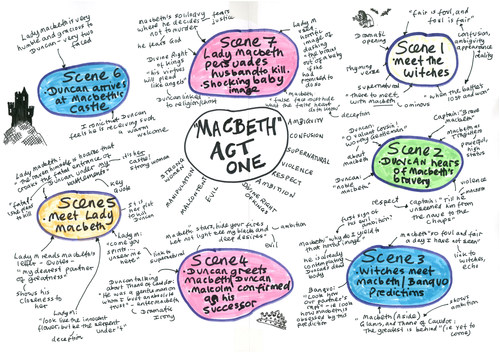 "MACBETH"
ACT
ONE
AMBIGUITY
CONFUSION
SUPERNATURAL
VIOLENCE
RESPECT
AMBITION
DIVINE RIGHT
OF KINGS
EVIL
MALCONTENT
MANIPULATION
STRONG
WOMAN
Scene 1
meet the
witches
"fair is foul, and
foul is fair"
Dramatic
opening
rhyming
verse
supernatural
"there to meet
with macbeth"
ominous
confusion,
ambiguity
appearance
reality
"when the battle's
lost and won"
Scene 2
DUNCAN hears
of Macbeth's
bravery
Captain: "Brave
macbeth"
Duncan:
"O valiant cousin!
worthy gentleman"
about
macbeth
Duncan:
"noble
macbeth"
respect
violence
Captain: "Till he
unseamed him from
the nave to the
chaps"
Scene 3
Witches meet
macbeth/BANQUO
Predictions
macbeth "so foul and fair
a day I have not seen"
link to
witches,
echo
first sign of
his ambition?
macbeth "why do I yield to
that horrid image"
Banquo:
"Look how
our partner's
rapt"
shows
ambition
Macbeth (Aside)
Glamis, and Thane of Cawdor:
The greatest is behind" (ie yet to
come)
Scene 4
Duncan greets
macbeth/Duncan
"Malcolm" confirmed
as his
successor
Macbeth "stars, hide your fires!
Let not light see my black and
deep desires"
ambition
evil
Duncan talking
about Thane of Cawdor:
"He was a gentleman on
whom I built an absolute
trust"
Dramatic
Irony
Scene 5
meet Lady
Macbeth
Key
quote
Lady macbeth
"The raven himself is hoarse that
croaks the fatal entrance of
Duncan under my
battlements"
strong woman
Lady m:
"come you
spirits
unsex me
here"
Lady m reads macbeth's
letter - Quotes -
"my dearest partner
of greatness"
shows his
closeness to
her
Lady m:
"look like the innocent
flower, but be the serpent
under 't"
Scene 6
Duncan arrives
at Macbeth's
Castle
Lady macbeth very
humble and gracious to
Duncan - very
two faced
Ironic that Duncan
feels he is receiving such
a warm
welcome
Scene 7
Lady Macbeth
persuades
husband to kill.
Shocking baby
image
macbeth's soliloquy
where he decides
not to murder
fears
justice
he fears God
Divine Right
of Kings
"his virtues
will plead
like angels"
Duncan linked
to religion/Christ
macbeth
"false face must hide
what the false heart
doth know"
deception